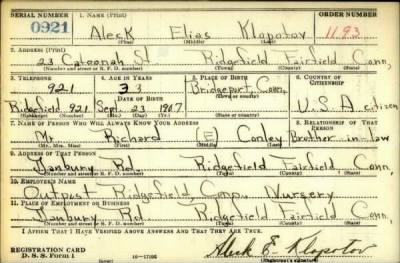 SERIAL NUMBER 1. NAME (Print) ORDER NUMBER
0921 Aleck Elias Klopotov 1193
(First) (Middle) (Last)
2. ADDRESS (Print)
23 Catoonah St. Ridgefield Fairfield Conn.
(Number and street or R. F. D. number) (Town) (County) (State)
3. TELEPHONE 4. AGE IN YEARS 5. PLACE OF BIRTH 6. COUNTRY OF CITIZENSHIP
921 33 Bridgeport
(Town or county)
DATE OF BIRTH Conn. U.S.A Citizen
Ridgefield 921 Sept. 23 1907
(Exchange) (Number) (Mo.) (Day) (Yr.) (State or country)
7. NAME OF PERSON WHO WILL ALWAYS KNOW YOUR ADDRESS 8. RELATIONSHIP OF THAT PERSON
Mr. Richard (E) Conley Brother-in-law
(Mr., Mrs., Miss) (First) (Middle) (Last)
9. ADDRESS OF THAT PERSON
Danbury Rd. Ridgefield Fairfield Conn.
(Number and street or R. F. D. number) (Town) (County) (State)
10. EMPLOYER'S NAME
Outpost Ridgefield Conn. Nursery
11. PLACE OF EMPLOYMENT OR BUSINESS
Danbury Rd. Ridgefield Fairfield Conn.
(Number and street or R. F. D. number) (Town) (County) (State)
I AFFIRM THAT I HAVE VERIFIED ABOVE ANSWERS AND THAT THEY ARE TRUE.
REGISTRATION CARD
D. S. S. Form 1 (over) 16-17105 Aleck E. Klopotov
(Registrant's signature)